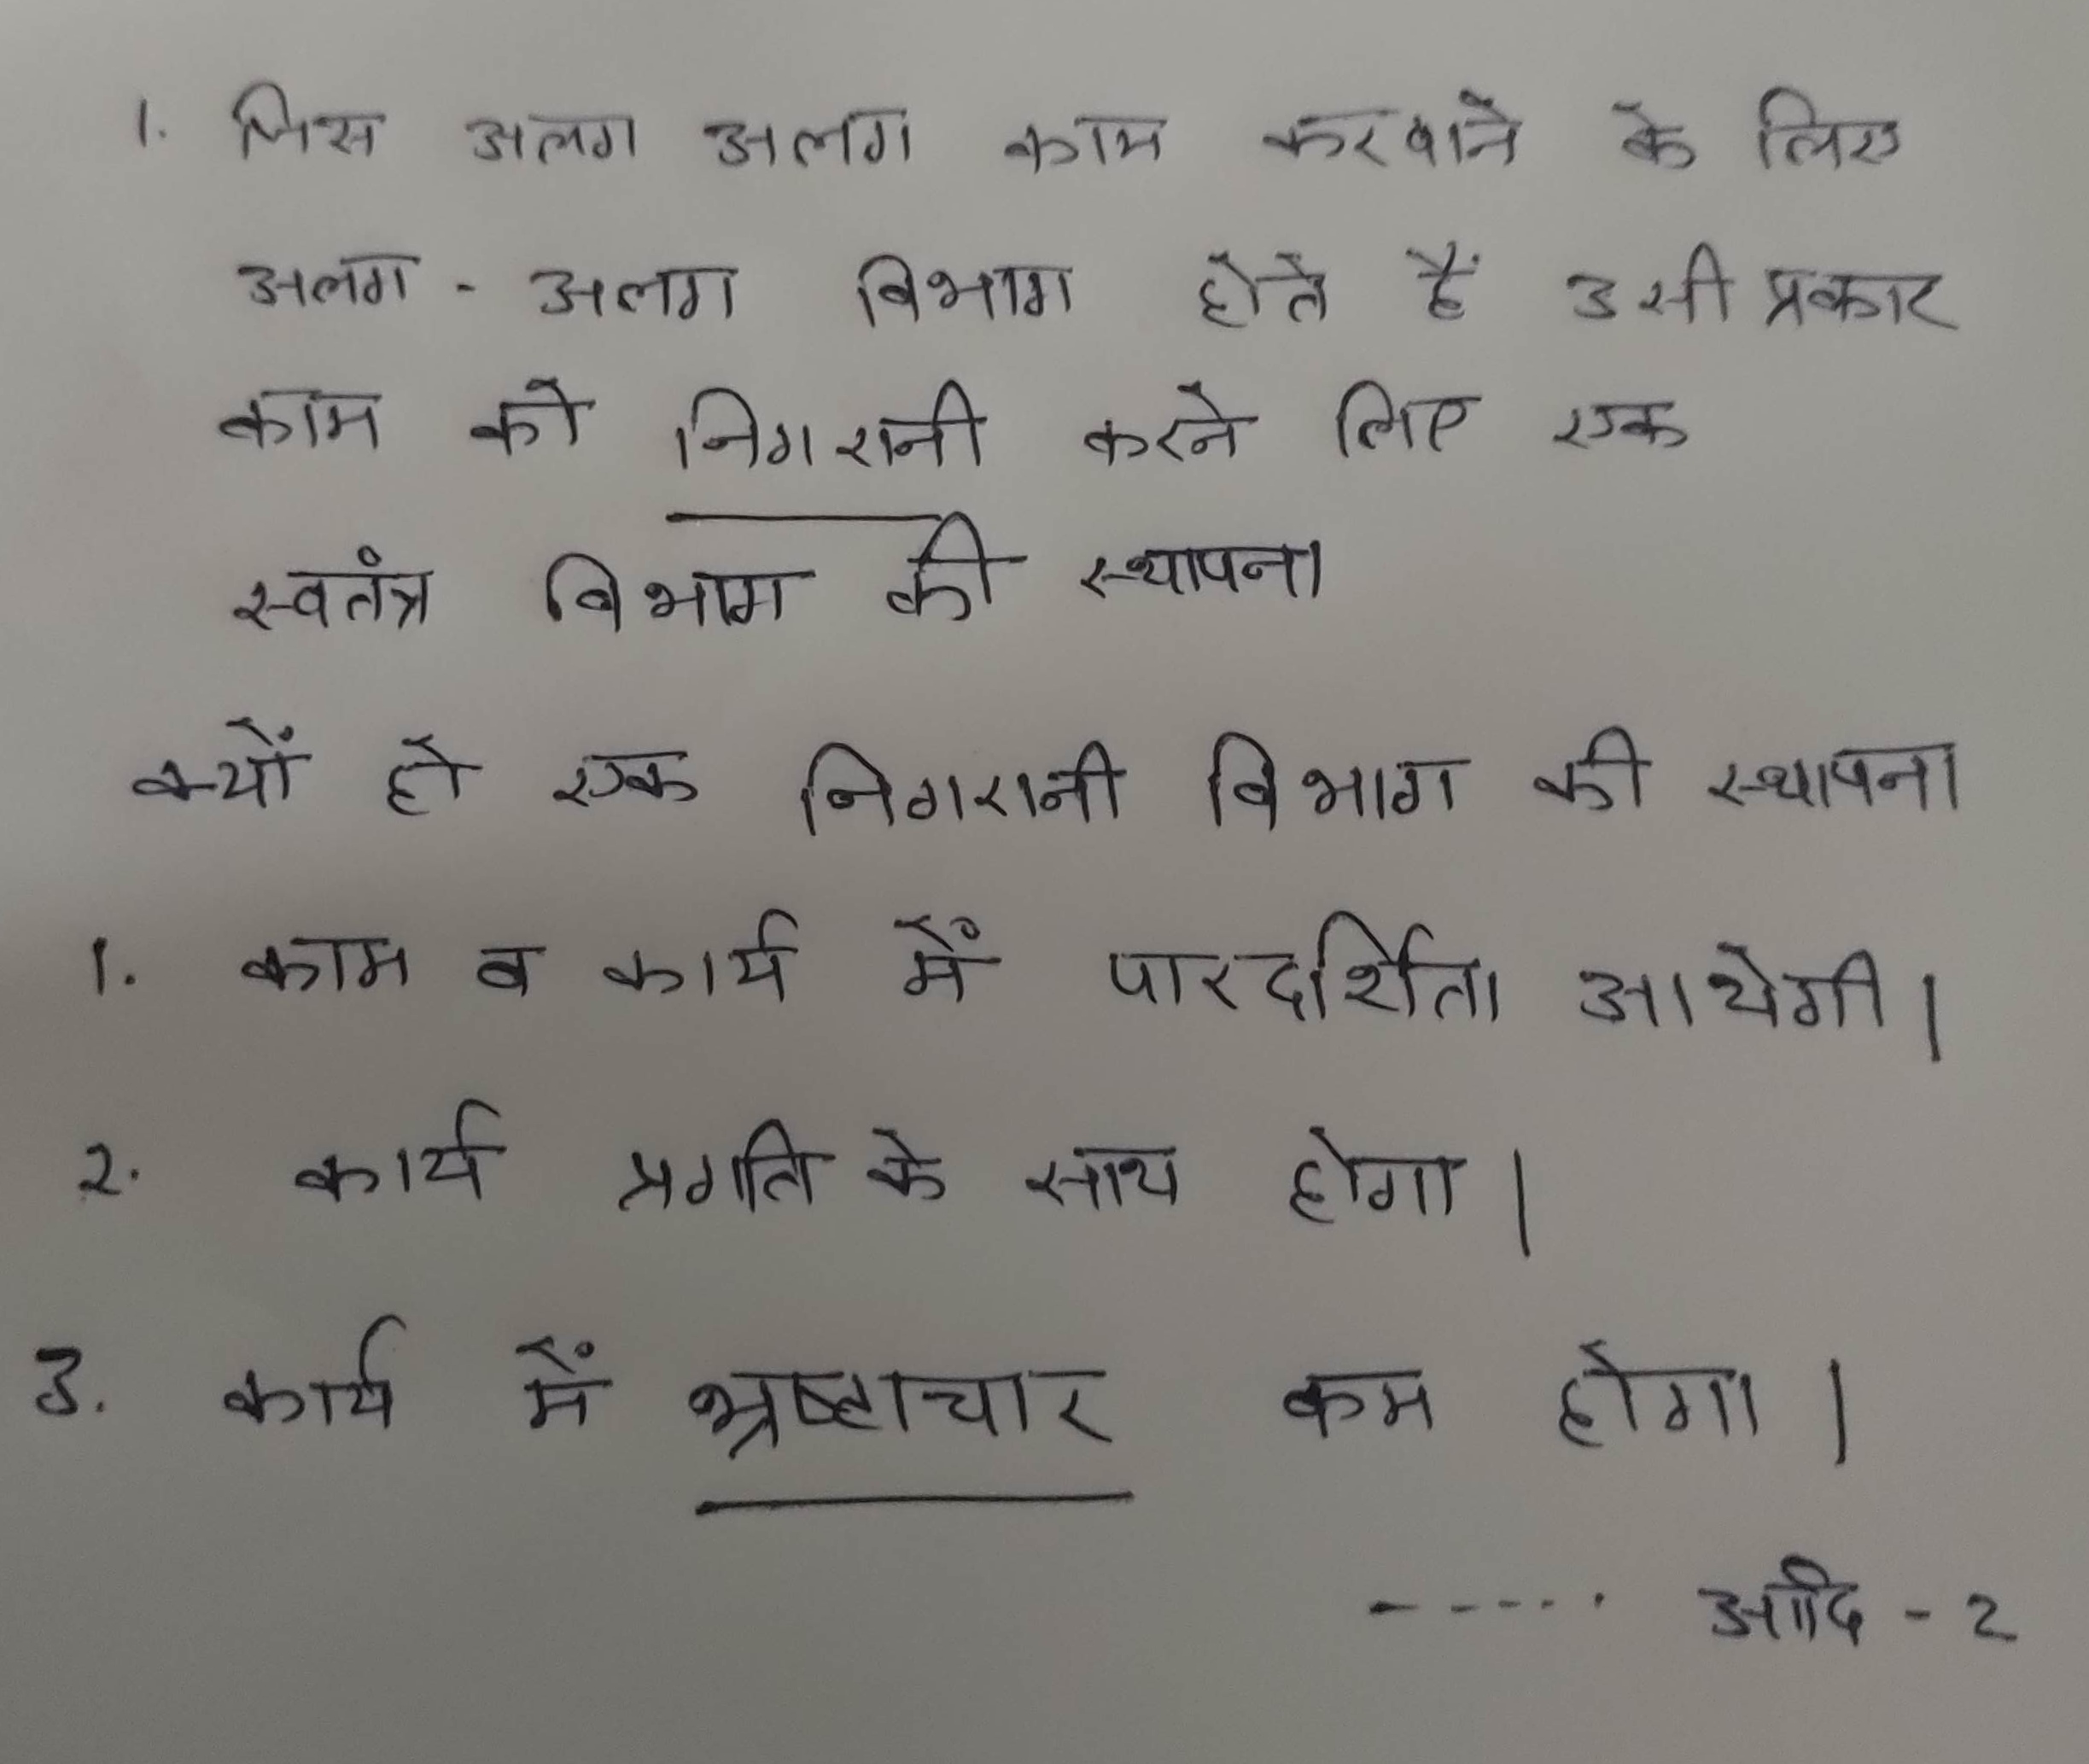 1. जिस अलग अलग काम करवाने के लिए
अलग - अलग विभाग होते हैं उसी प्रकार
काम को निगरानी करने लिए एक
स्वतंत्र विभाग की स्थापना
क्यों हो एक निगरानी विभाग की स्थापना
1. काम व कार्य में पारदर्शिता आयेगी।
2. कार्य प्रगति के साथ होगा।
3. कार्य में भ्रष्टाचार कम होगा।
----- आदि - 2